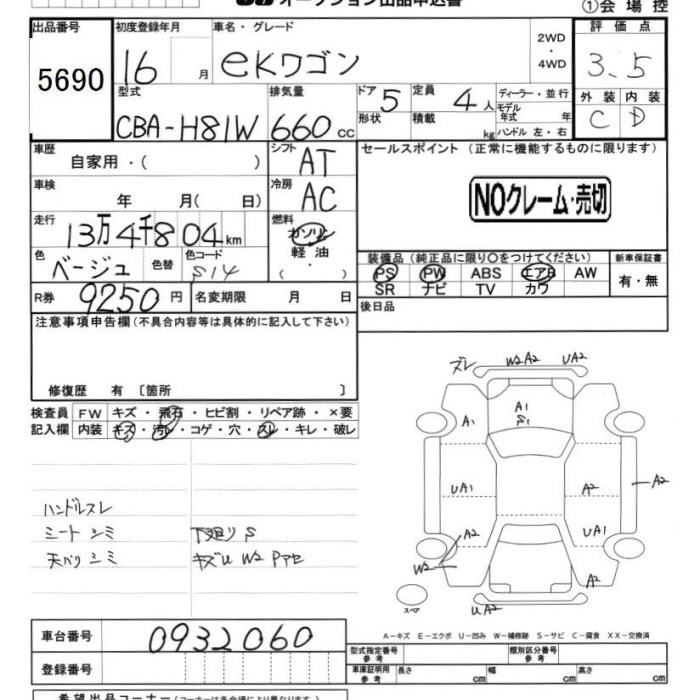 オークション出品申込書
①会場控
出品番号 初度登録年月 車名・グレード 2WD・4WD 評価点
5690 16 月 eKワゴン 3.5
型式 排気量 ドア 5 定員 4人 ディーラー・並行 外装 内装
CBA-H81W 660cc 形状 積載 kg モデル年式 年 C D
ハンドル 左・右
車歴 自家用・( ) シフト AT セールスポイント (正常に機能するものに限ります)
車検 年 月( 日) 冷房 AC NOクレーム・売切
走行 13万4千804km 燃料 ガソリン
色 ベージュ 色替 色コード S14 軽油 ・( ) 装備品 (純正品に限り○をつけてください) 新車保証書
PS PW ABS エアB AW 有・無
SR ナビ TV カワ
R券 9250円 名変期限 月 日 後日品
注意事項申告欄 (不具合内容等は具体的に記入して下さい)
修復歴 有 〔箇所 〕
ズレ W2 A2 UA2
検査員 FW キズ・飛石・ヒビ割・リペア跡・×要
記入欄 内装 キズ・汚レ・コゲ・穴・スレ・キレ・破レ
A1 A1 S1 A1
UA1 A2 A2
A2 UA1
W2 A2
ハンドルスレ
シート シミ 下廻り S
天バリ シミ キズU W2 Pアセ
スペア UA2
A-キズ E-エクボ U-凹み W-補修跡 S-サビ C-腐食 XX-交換済
車台番号 0932060
型式指定番号 参考 類別区分番号 参考
登録番号 車庫証明用 参考 長さ cm 幅 cm 高さ cm
希望出品コーナー